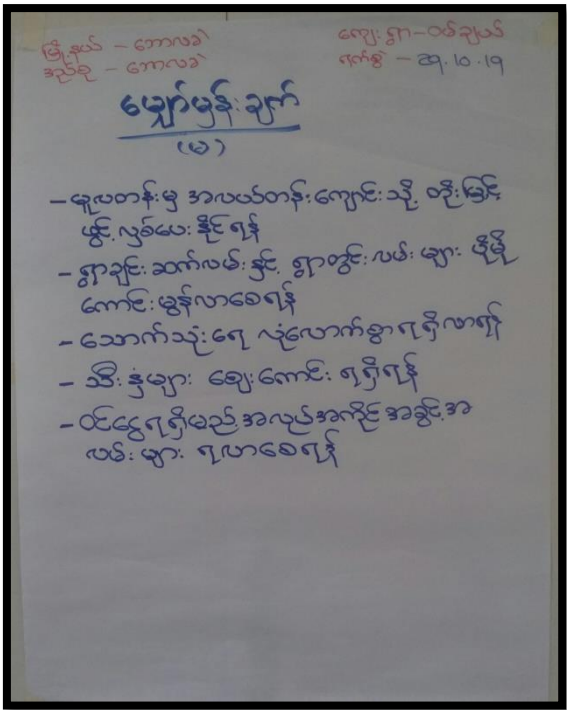 မြို့နယ် – ဘောလခဲ
ကျေးရွာ – ဝမ်ချယ်
အုပ်စု – ဘောလခဲ
ရက်စွဲ – 29.10.19
မျှော်မှန်းချက်
(မ)
– မူလတန်းမှ အလယ်တန်းကျောင်းသို့ တိုးမြှင့်
ဖွင့်လှစ်ပေးနိုင်ရန်
– ရွာချင်းဆက်လမ်းနှင့် ရွာတွင်းလမ်းများ ပိုမို
ကောင်းမွန်လာစေရန်
– သောက်သုံးရေ လုံလောက်စွာရရှိလာရန်
– သီးနှံများ ဈေးကောင်းရရှိရန်
– ဝင်ငွေရရှိမည့်အလုပ်အကိုင်အခွင့်အ
လမ်းများ ရလာစေရန်